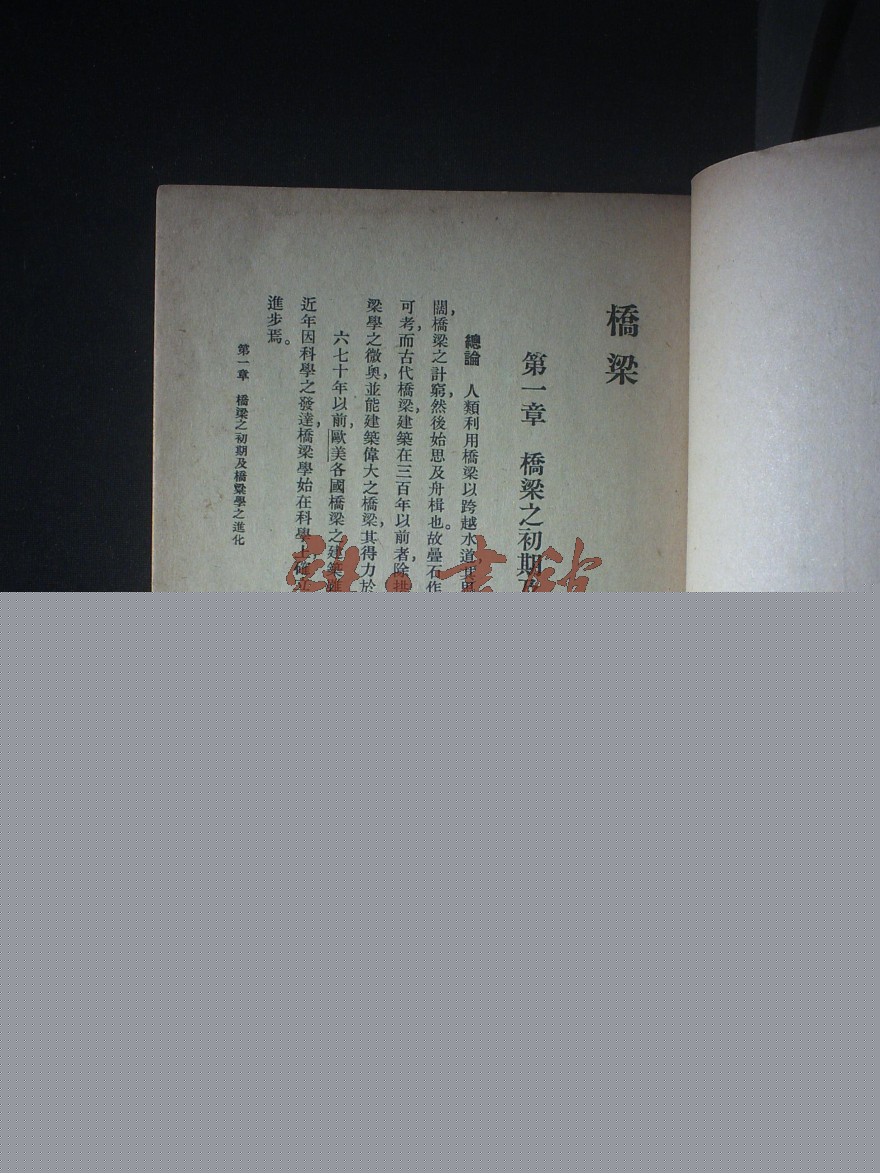 橋梁
第一章 橋梁之初期
總論 人類利用橋梁以跨越水道,其
闊,橋梁之計窮,然後始思及舟楫也。故疊石作
可考,而古代橋梁建築在三百年以前者,除拱
梁學之微奥,並能建築偉大之橋梁,其得力於
六七十年以前,歐美各國橋梁之建築,雖
近年因科學之發達,橋梁學始在科學上確立
進步焉。
第一章 橋梁之初期及橋梁學之進化